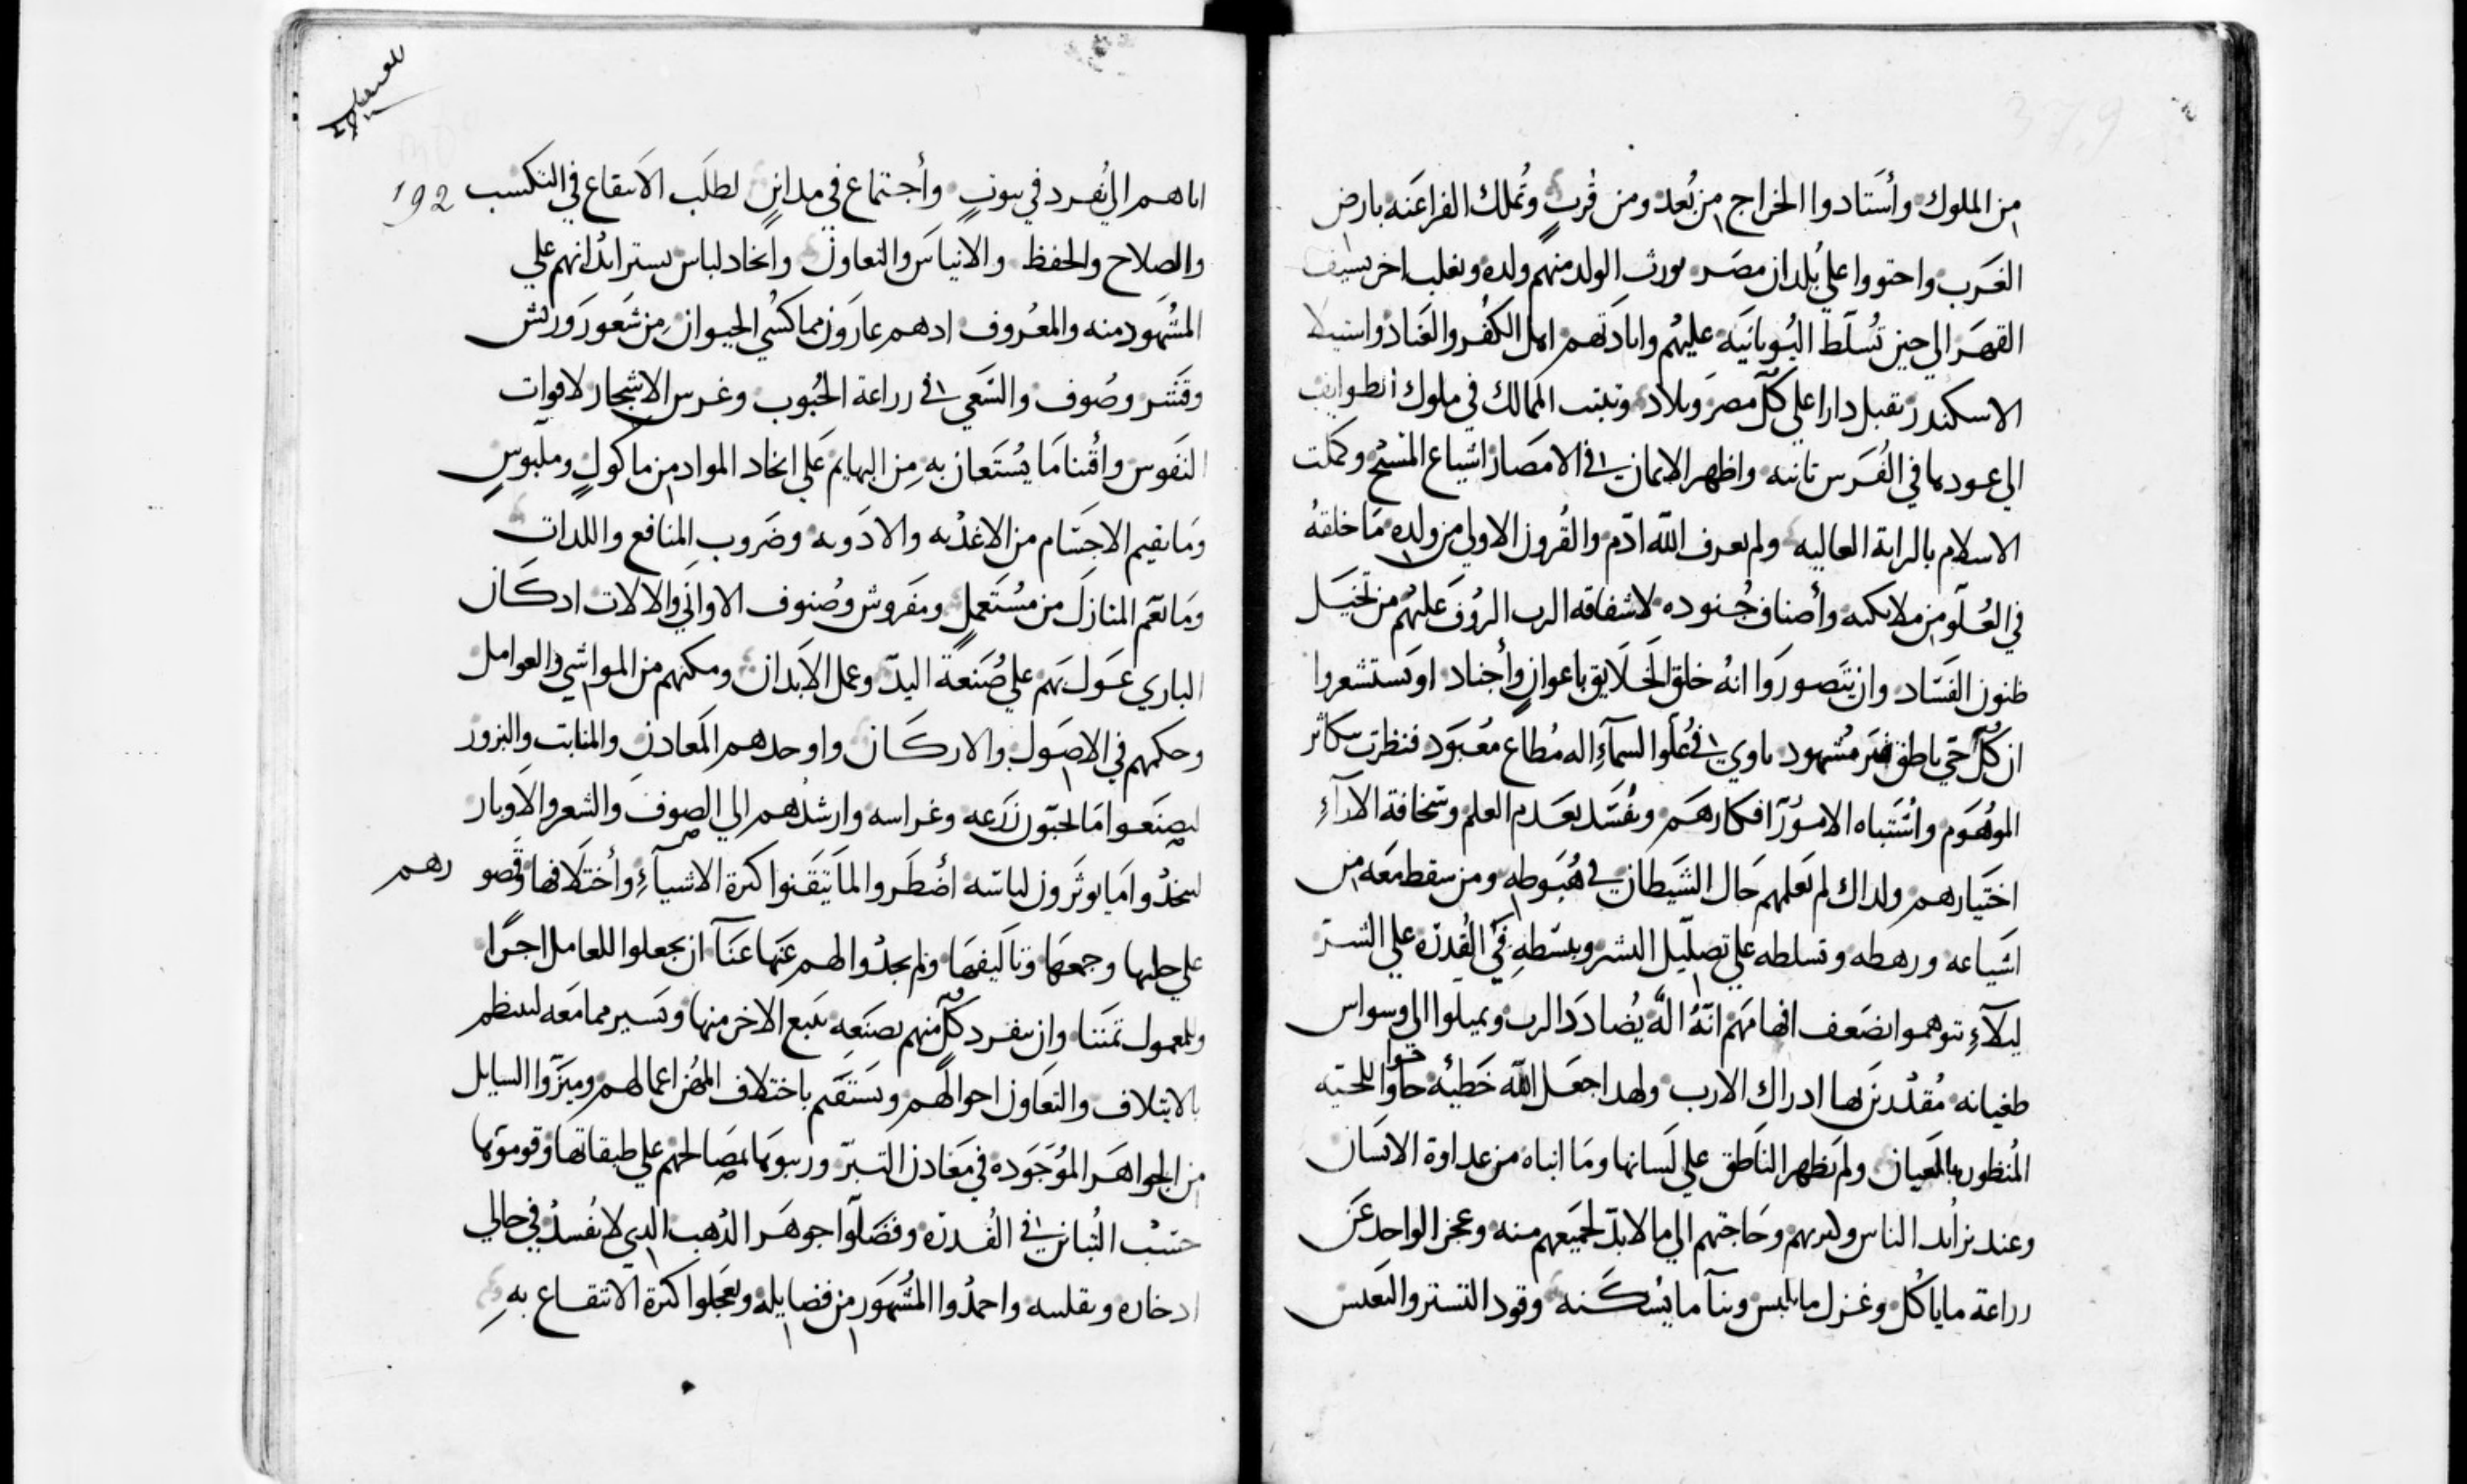 من الملوك وأستادوا الخراج من بُعد ومن قُربٍ وتملك الفراعنه بارض
الغرب واحتووا علي بُلدان مصر يورث الولد منهم ولده ويغلب اخر بسيف
القهر الي حين تسلّط اليُونانيَه عليهُم وابادتهم اهل الكفُر والعناد واستيلا
الاسكندر بقبل دارا علي كلّ مصر وبلاد وتبتب الممالك في ملوك الطوايف
الي عودها في الفُرس ثانيه واظهر الايمان في الامصار اشياع المسّيح وكملت
الاسلام بالراية العاليه ولم يعرف اللّه ادّم والقُرون الاولي من ولده ما خلقهُ
في العُلّو من ملايكته وأصناف جُنوده لاشفاقه الرب الرؤف عليهُم من تخيّل
ظنون الفسّاد وان يتصوروَا انهُ خلق الخلايق باعوانٍ وأجناد او يستشعروا
ان كُلّ حيّ ناطق غير مُشهود ياوي في عُلو السمآءِ اله مُطاع معُبود فنظرت بتكاثر
الموهُوم واشُتباه الامُور افكارهَم ويفُسّد بعَدم العلم وسّخافة الارآءِ
اختيارهم ولداك لم يعلمهم حَال الشيطان في هُبوطه ومن سقط معَه من
اشياعه ورهطه وتسلطه علي تصليّل البشر وبسّطهِ في القُدرَه علي الشّر
ليلآءِ يتوهموا بضَعف افهامهَم انّهُ الهٌ يُضاددَ الرب ويميلوا الي وسواس
طغيانه مُقدُرين لها ادراك الارب ولهدا جعَل اللّه خَطيئه حاوّا حوا للحيّه
المُنظوره بالعيان ولم يظهر الناطق علي لسانها ومَا انباه من عداوة الانسَان
وعند تزايُد الناس وكثرتهم وحَاجتهم الي ما لا بدّ لجميَعهم منه وعجز الواحد عَن
زراعة ما ياكُل وغزل ما يلبس وبنآ ما يسُكنه وقود التستر والتعيس
192
اياهم الي نُفرد في بيوتٍ وأجتماع في مداينٍ لطلَب الانتفاع في التكسب
والصلاح والحفظ والايناسَ والتعاون واتخاد لباس يستر ابدُانهم علي
المشُهود منه والمعُروف ادهم عارَون مما كسُي الحيوان مِن شعَور وريش
وقشر وصُوف والسّعَي في زراعة الحُبوب وغرس الاشجار لاقوات
النفوس وأقُنا مَا يسُتعان بهِ مِن البهايم عَلي اتخاد المواد من ماكولٍ وملبَوسٍ
ومَا يقيم الاجسّام من الاغدُيه والادَويه وضَروب المنافع واللدات
ومَا يعَم المنازل من مسُتعملٍ ومفَروش وصُنوف الاواني والالات ادكَان
الباري عَوّلَ بهَم علي صُنعَة اليدّ وعمل الابَدان ومكنهم من المواشي والعوامل
وحكمهم في الاصَول والاركان واوحدهم المعَادن والمنابت والبزور
ليصنَعوا مَا يحبّون زرَعه وغراسه وارشدُهم الي الصوف والشعر والاوبار
ليتخدُوا مَا يوثرَون لباسّه اضُطَروا لما تيَقنوا كثرة الاشيآءِ وأختلافها وقصورهم
علي حلبها وجمعهَا وتاليفهَا ولم يجدُوا لهم عَنها عَنآ ان يجعلوا للعامل اجرًا
وللمعمول ثمَنًا وان ينفرد كلٌّ منهم بصنَعهِ يتبع الاخر منها ويَسير مما معَه لينتظم
بالايتلاف والتعَاون احوالهم ويستَقم باختلاف المهُن اعمالهم وميَزوا السايل
من الجواهَر الموُجَوده في معَادن التبرّ ورتبوهَا بمصَالحهم علي طبقاتهَا وقوموَها
حسَبُ التُباين في القُدرَه وفضَلّوا جوهَر الدُهب الدي لا يفُسدُ في حالي
ادخاره وتقليبه واحمدُوا المشُهَور من فضايله ويعَجلوا كثرة الانتفاع بهِ